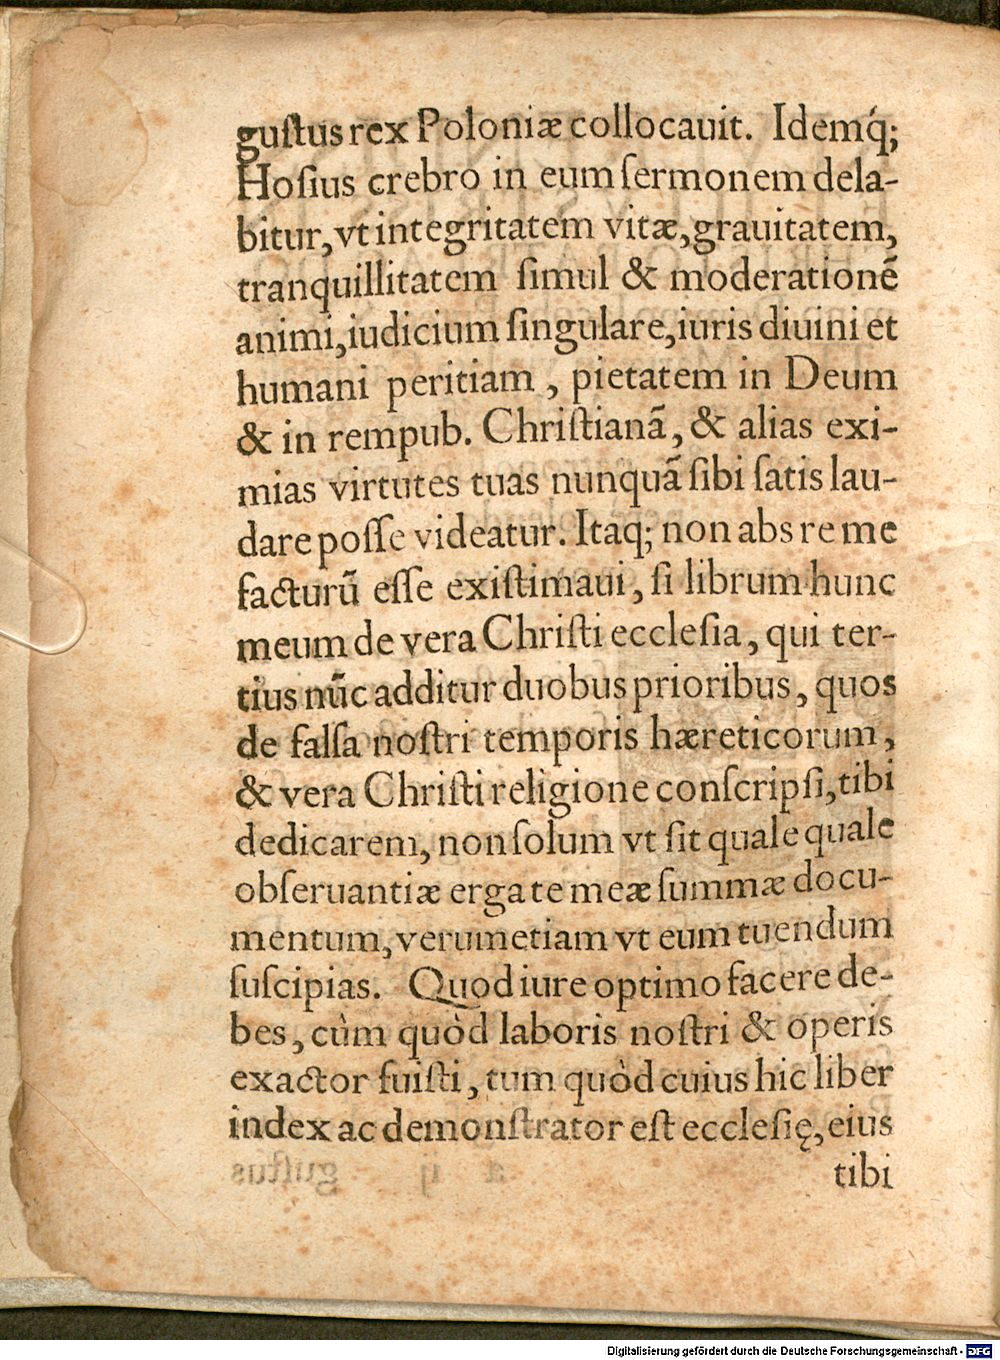 guſtus rex Poloniæ collocauit. Idemq́;
Hoſius crebro in eum ſermonem dela-
bitur, vt integritatem vitæ, grauitatem,
tranquillitatem ſimul & moderationẽ
animi, iudicium ſingulare, iuris diuini et
humani peritiam, pietatem in Deum
& in rempub. Chriſtianã, & alias exi-
mias virtutes tuas nunquã ſibi ſatis lau-
dare poſſe videatur. Itaq; non abs re me
facturũ eſſe exiſtimaui, ſi librum hunc
meum de vera Chriſti eccleſia, qui ter-
tius nũc additur duobus prioribus, quos
de falſa noſtri temporis hæreticorum,
& vera Chriſti religione conſcripſi, tibi
dedicarem, non ſolum vt ſit quale quale
obſeruantiæ erga te meæ ſummæ docu-
mentum, verumetiam vt eum tuendum
ſuſcipias. Quod iure optimo facere de-
bes, cùm quòd laboris noſtri & operis
exactor fuiſti, tum quòd cuius hic liber
index ac demonſtrator eſt eccleſię, eius
tibi
Digitalisierung gefördert durch die Deutsche Forschungsgemeinschaft - DFG